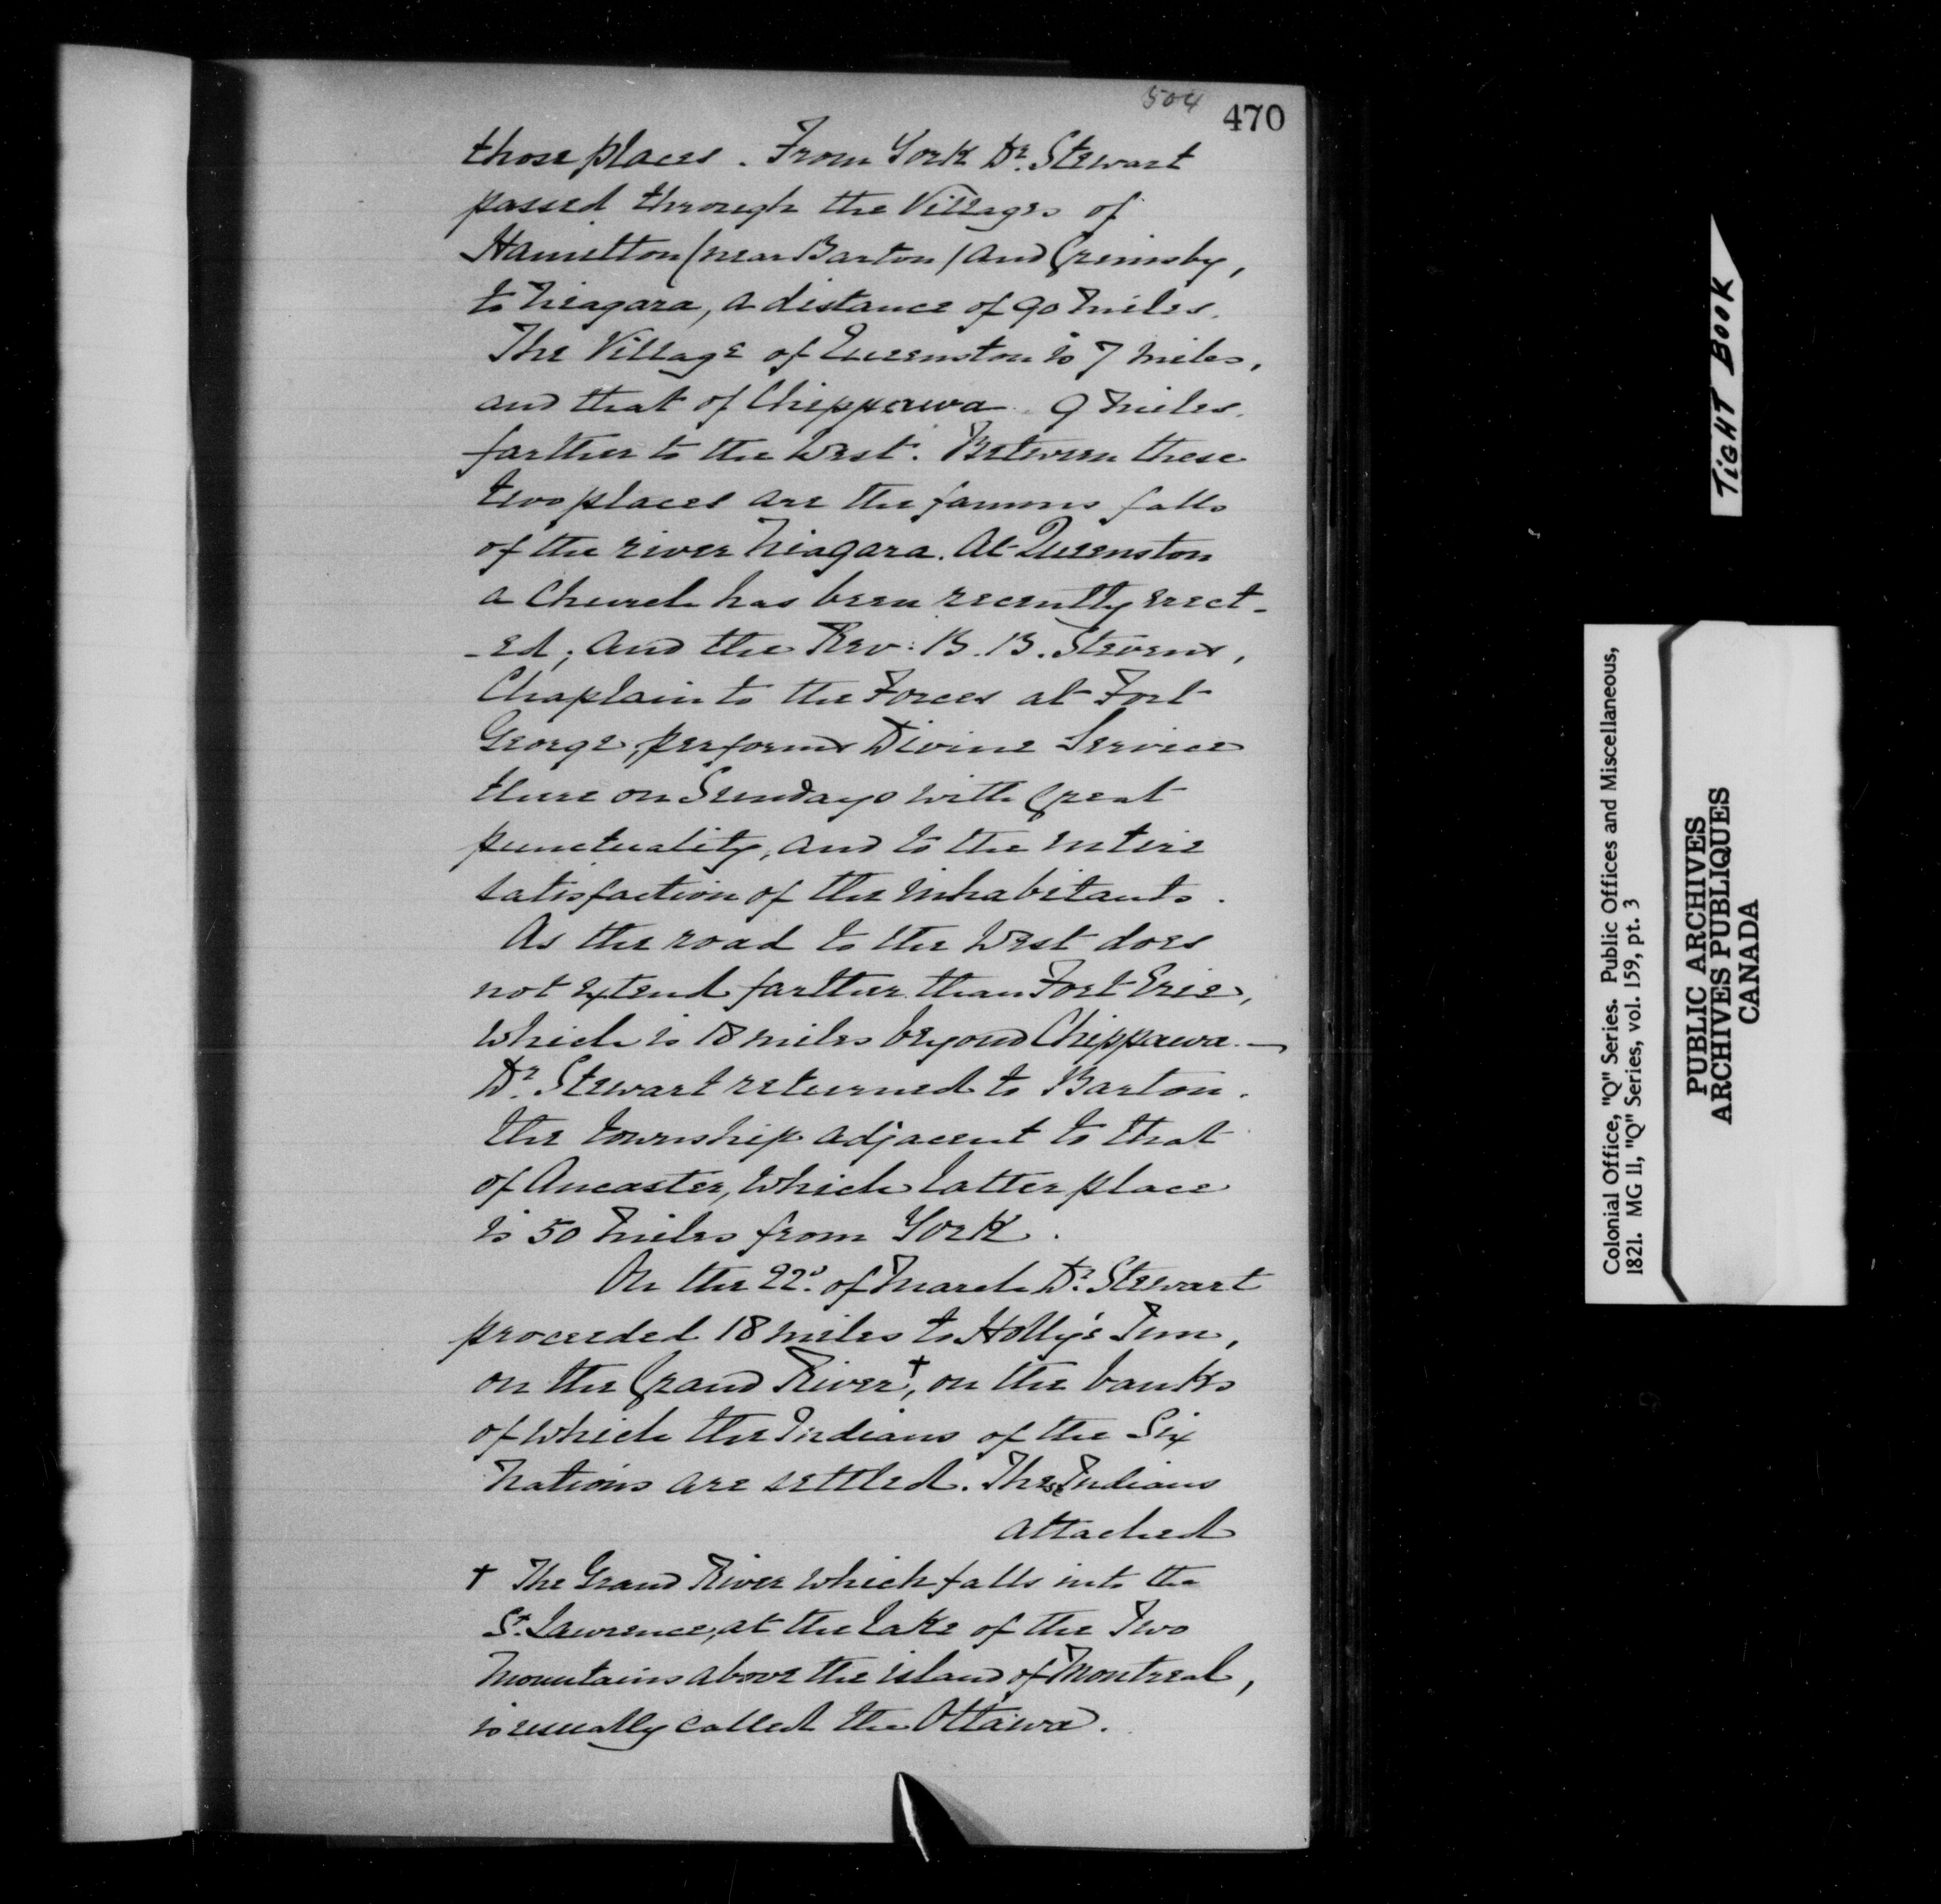 504
470
those places. From York Dr. Stewart
passed through the Villages of
Hamilton (near Barton) and Grimsby,
to Niagara, a distance of 90 miles.
The Village of Queenston is 7 miles,
and that of Chippawa 9 miles.
farther to the West. Between these
two places are the famous falls
of the river Niagara. At Queenston
a Church has been recently erect-
-ed; and the Rev: B. B. Stevens,
Chaplain to the Forces at Fort
George, performs Divine Service
there on Sundays with Great
punctuality, and to the entire
satisfaction of the inhabitants.
As the road to the West does
not extend farther than Fort Erie,
which is 18 miles beyond Chippawa. —
Dr. Stewart returned to Barton.
the township adjacent to that
of Ancaster, which latter place
is 50 miles from York.
On the 22d. of March Dr. Stewart
proceeded 18 miles to Holly's Inn,
on the Grand River†, on the banks
of which the Indians of the Six
Nations are settled. These Indians
attached
† The Grand River which falls into the
St. Lawrence, at the Lake of the Two
Mountains above the island of Montreal,
is usually called the Ottawa.
TIGHT BOOK
Colonial Office, "Q" Series. Public Offices and Miscellaneous,
1821. MG 11, "Q" Series, vol. 159, pt. 3
PUBLIC ARCHIVES
ARCHIVES PUBLIQUES
CANADA